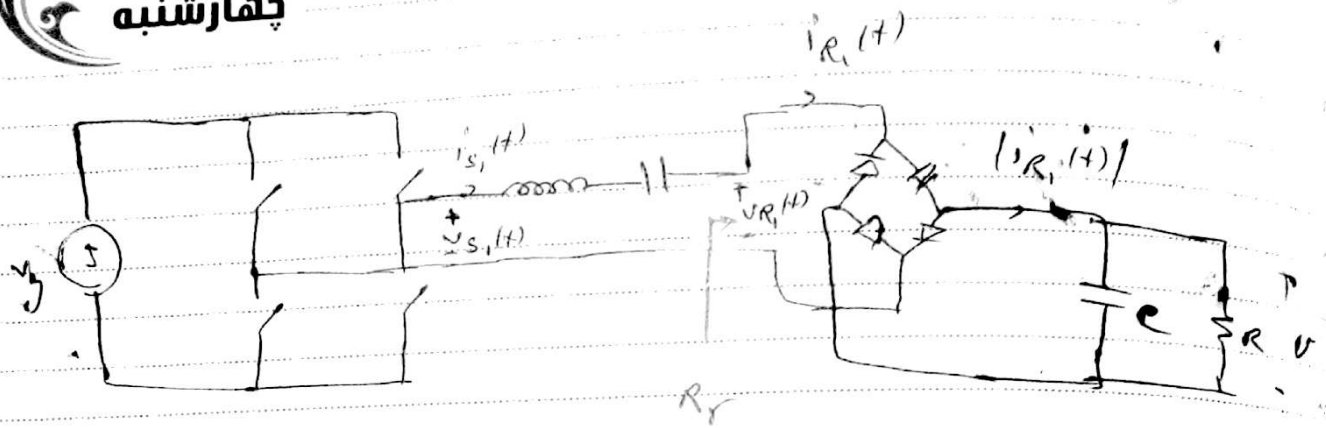 چهارشنبه
i_{R_1}(t)
i_{S_1}(t)
|i_{R_1}(t)|
+
v_{R_1}(t)
-
+
v_{S_1}(t)
-
v_g
C
R
v
R_r